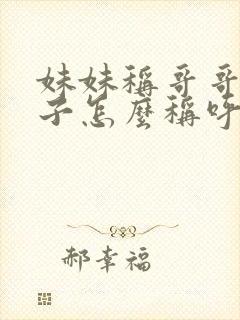 妹妹稱哥哥
子怎麼稱呼
郝幸福